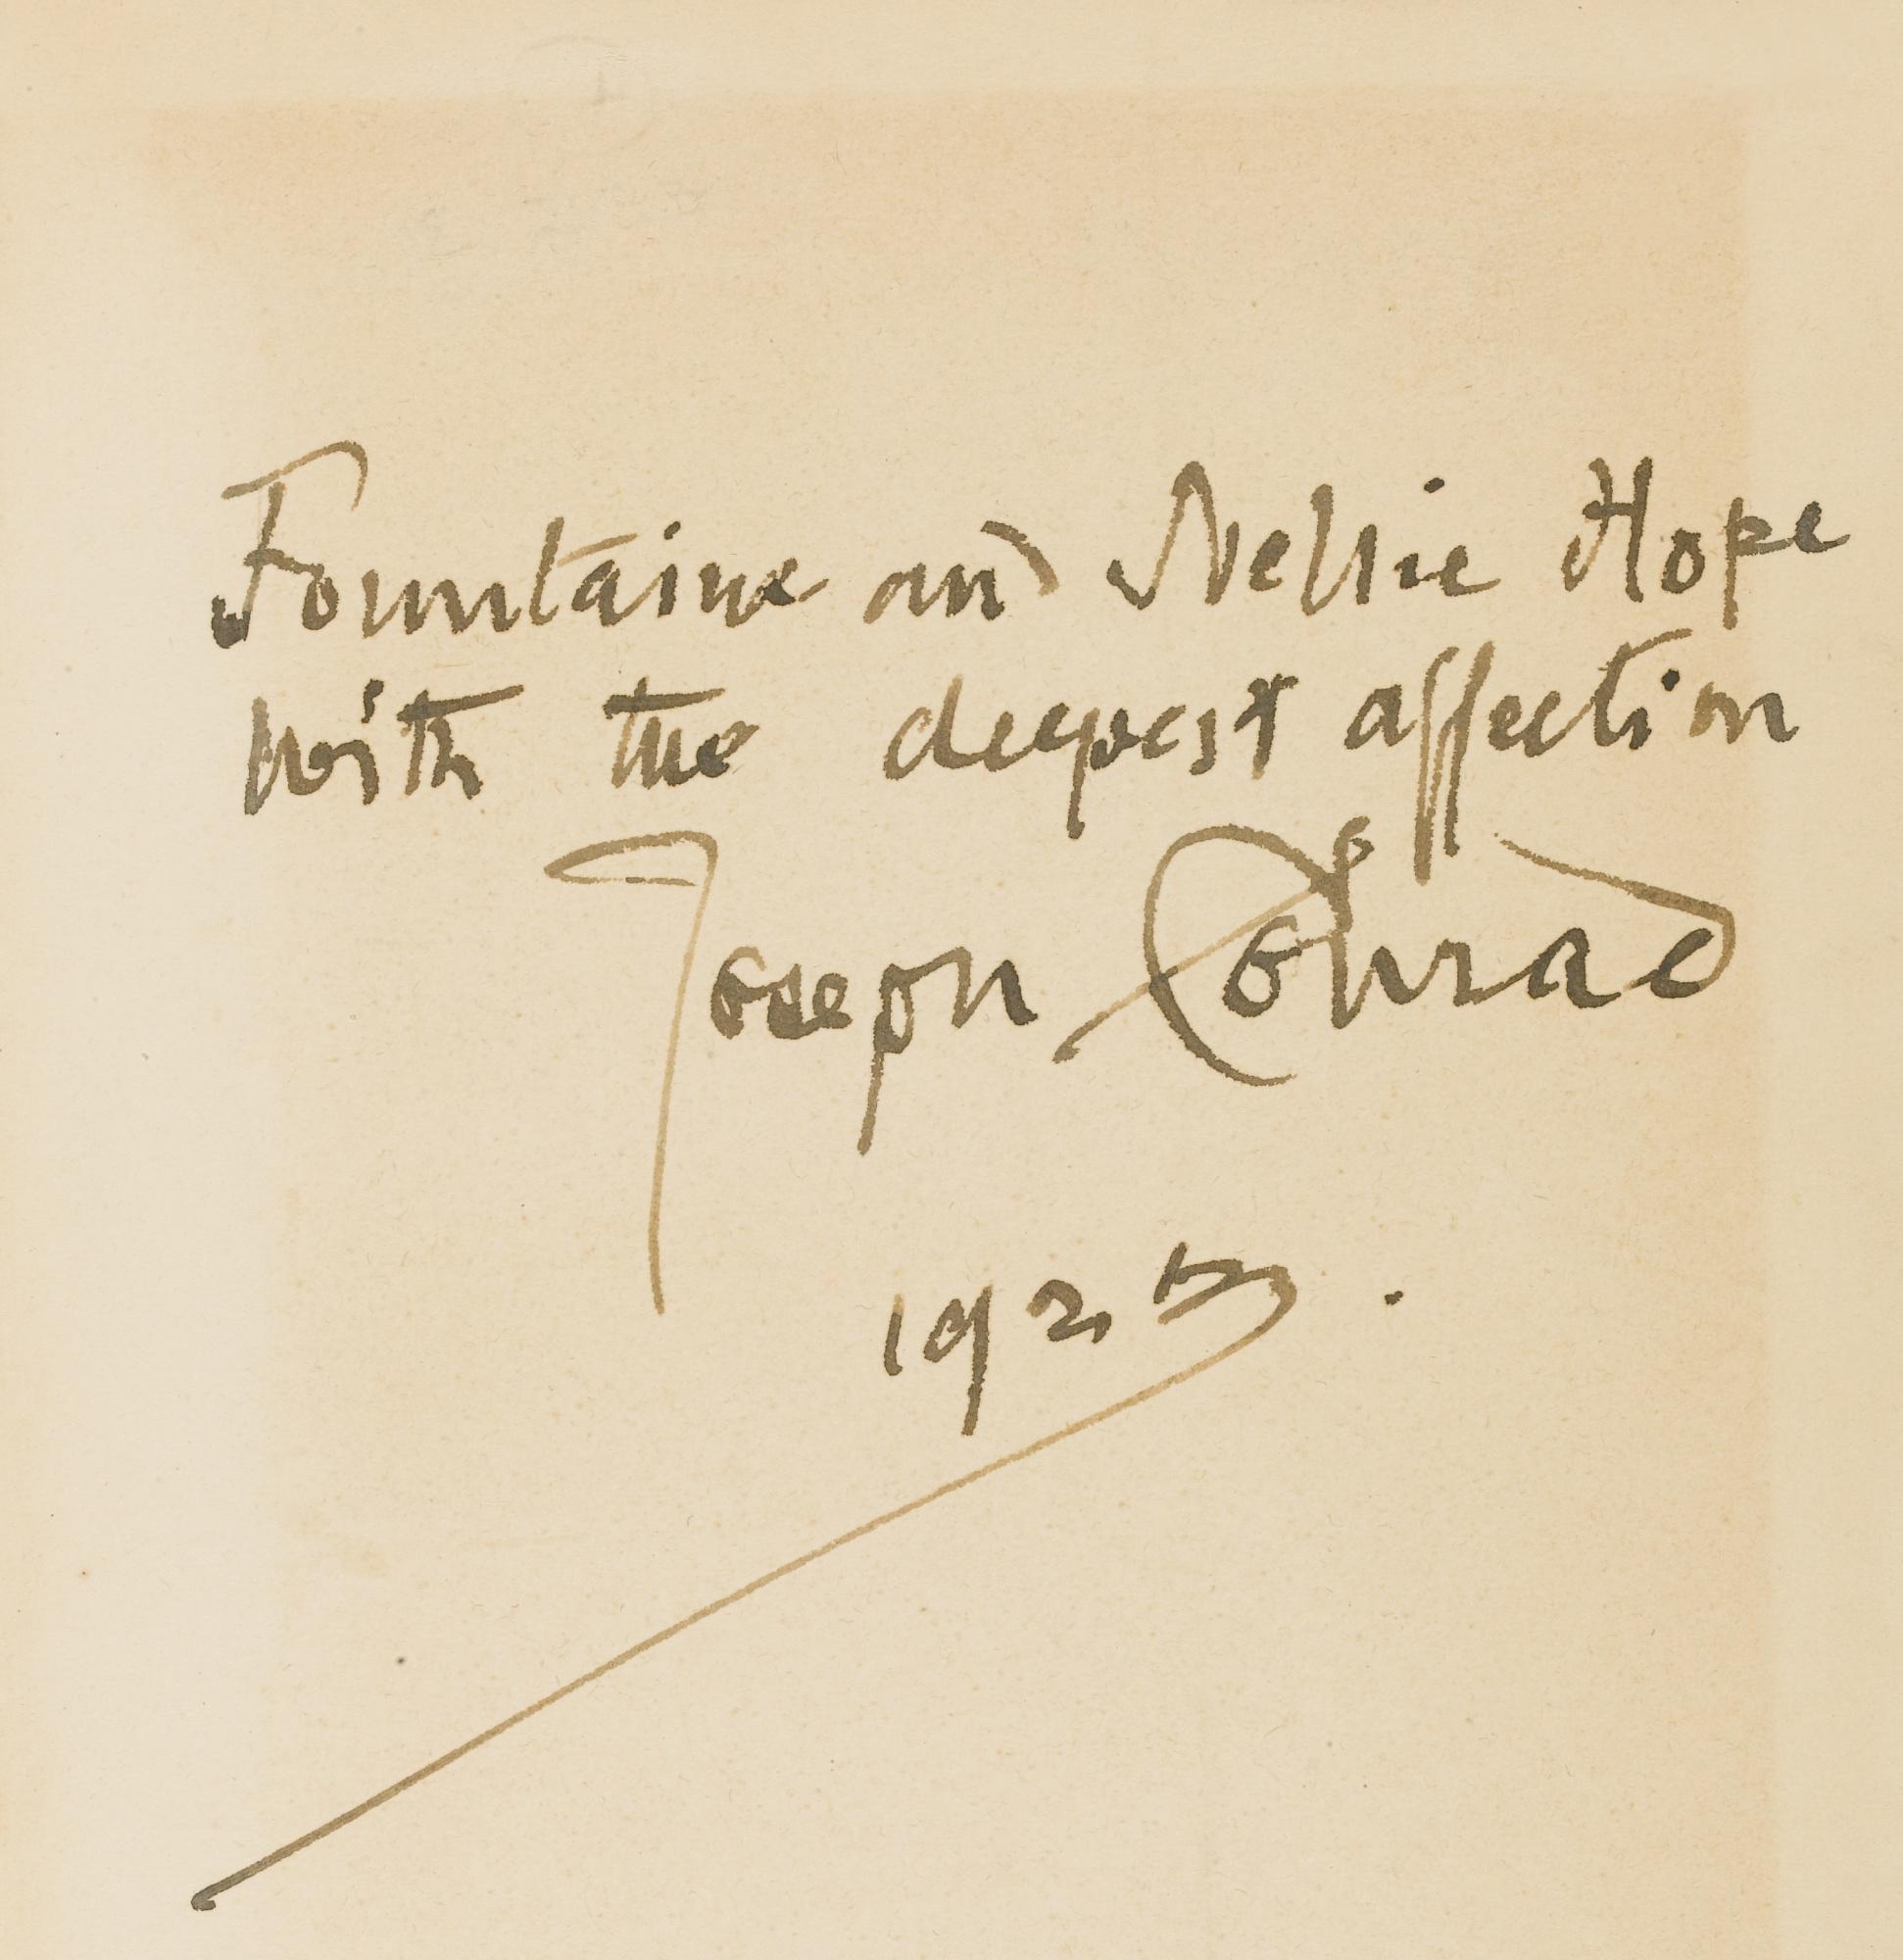 Fountaine and Nellie Hope
with the deepest affection
Joseph Conrad
1923.